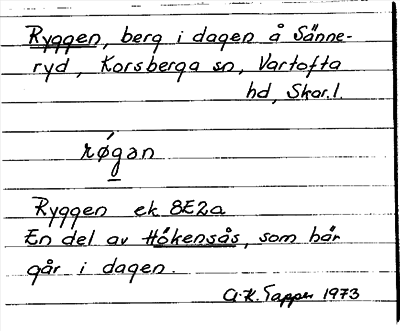 Ryggen, berg i dagen å Sänne-
ryd, Korsberga sn, Vartofta
hd, Skar.l.
røgan
Ryggen ek 8E2a
En del av Hökensås, som här
går i dagen.
A.K. Tapper 1973